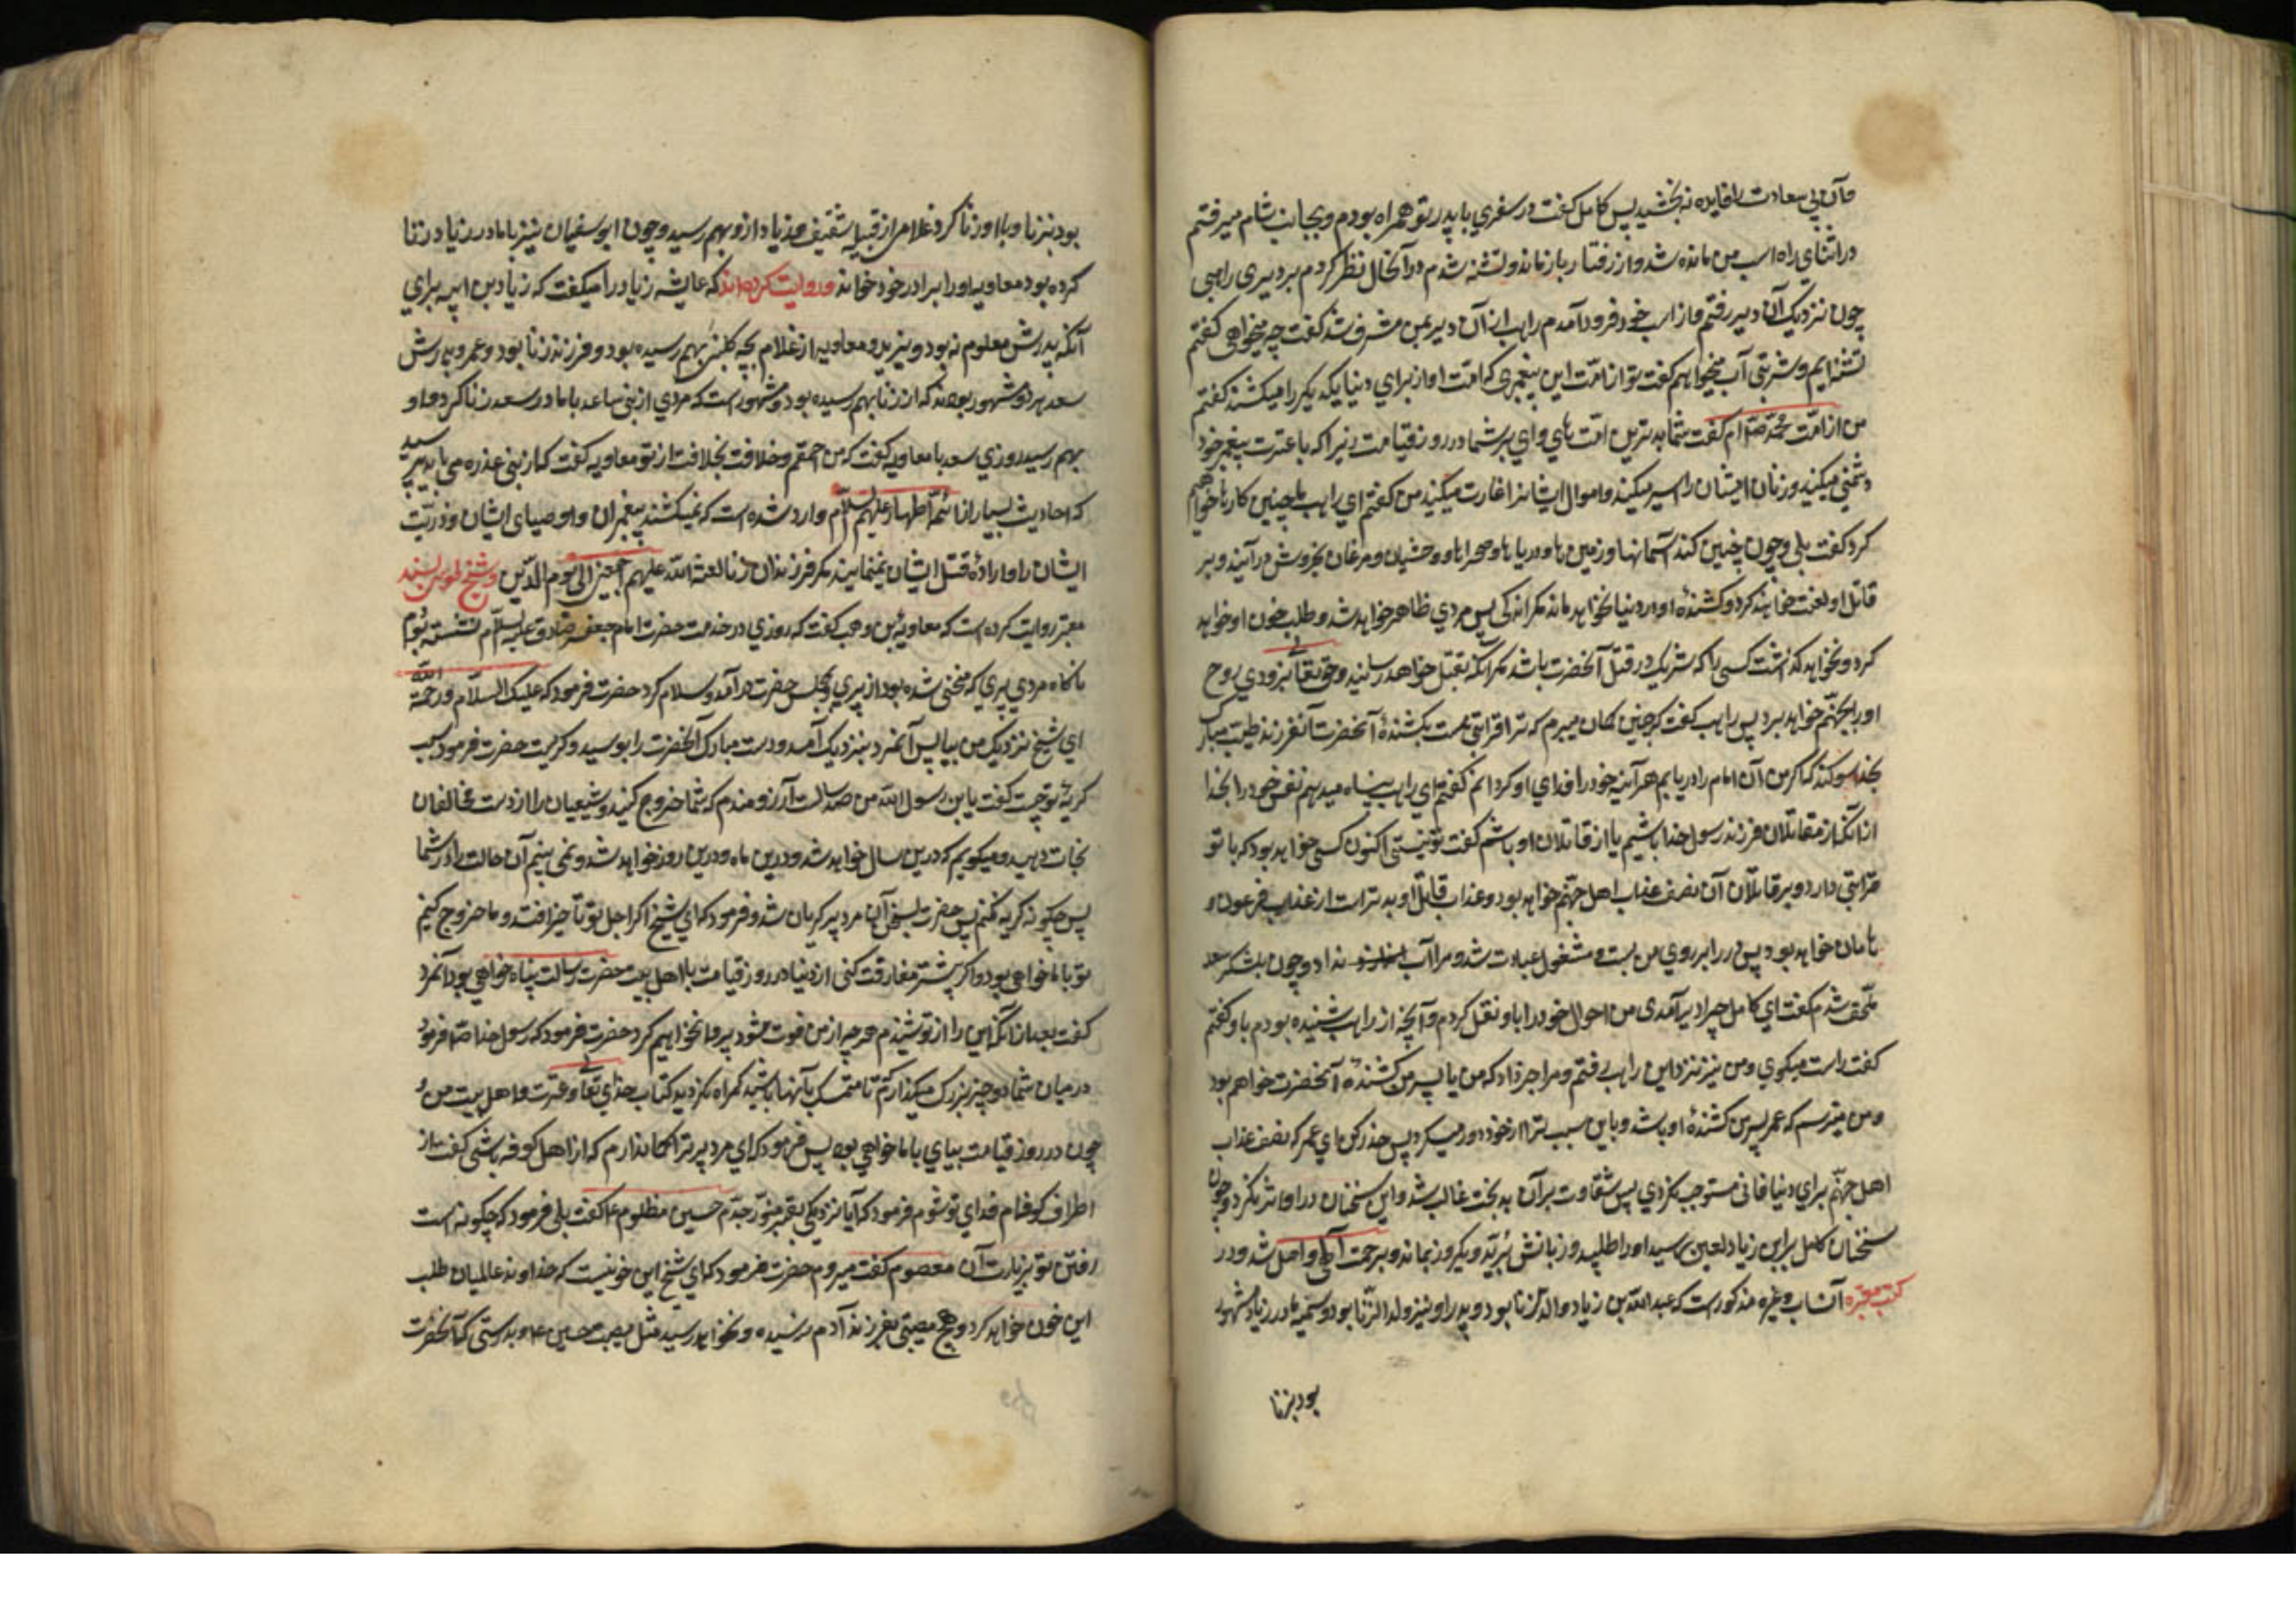 و آن بی سعادت را فایده نبخشید پس کامل گفت در سفری با پدر تو همراه بودم و بجانب شام میرفتم
در اثنای راه اسب من مانده شد و از رفتار بازماند و تشنه شدم در آنحال نظر کردم بر دیری راهبی
چون نزدیک آن دیر رفتم و از اسب خود فرود آمدم راهب از آن دیر بمن مشرف شد گفت چه میخواهی گفتم
تشنه ایم و شربتی آب میخواهم گفت تو از امت این پیغمبری که امت او از برای دنیا یکدیگر را میکشند گفتم
من از امت محمد ص ام گفت شما بدترین امت های وای بر شما در روز قیامت زیرا که با عترت پیغمبر خود
دشمنی میکنید و زنان ایشان را اسیر میکنید و اموال ایشانرا غارت میکنید من گفتم ای راهب ما چنین کارها خواهیم
کرد گفت بلی و چون چنین کنید آسمانها و زمین ها و دریاها و صحراها و وحشیان و مرغان بخروش درآیند و بر
قاتل او لعنت خواهند کرد و کشندهٔ او در دنیا نخواهد ماند مگر اندکی پس مردی ظاهر خواهد شد و طلب خون او خواهد
کرد و نخواهد گذاشت کسی را که شریک در قتل آنحضرت باشد مگر آنکه بقتل خواهد رسانید و حق تعالی بزودی روح
او را بجهنم خواهد برد پس راهب گفت که چنین گمان میبرم که ترا قرابتی هست بکشندهٔ آنحضرت آن فرزند طیب مبارک
بخدا سوگند که اگر من آن امام را دریابم هر آینه خود را فدای او گردانم گفتم ای راهب پناه میدهم نفس خود را بخدا
از آنکه از مقاتلان فرزند رسول خدا باشم یا از قاتلان او باشم گفت تو نیستی اکنون کسی خواهد بود که با تو
قرابتی دارد و بر قاتلان آن نصف عذاب اهل جهنم خواهد بود و عذاب قاتل او بدتر است از عذاب فرعون و
هامان خواهد بود پس در را بر روی من بست و مشغول عبادت شد و مرا آب نداد و چون بلشکر سعد
ملحق شدم گفت ای کامل چرا دیر آمدی من احوال خود را با او نقل کردم و آنچه از راهب شنیده بودم باو گفتم
گفت راست میگوی و من نیز نزد این راهب رفتم و مرا خبر داد که من یا پسر من کشندهٔ آنحضرت خواهم بود
و من میترسم که عمر پسر من کشندهٔ او باشد و باین سبب ترا از خود دور میکرد پس حذر کن ای عمر که نصف عذاب
اهل جهنم برای دنیا فانی مستوجب نگردی پس شقاوت بر آن بدبخت غالب شد و این سخنان در او اثر نکرد و چون
سخنان کامل بر ابن زیاد لعین رسید او را طلبید و زبانش برید و یک روز بماند و برحمت الهی واصل شد و در
کتب معتبره انساب و غیره مذکور است که عبد الله بن زیاد والد الزنا بود و پدر او نیز ولد الزنا بود و سمیه مادر زیاد مشهور
بود بزنا
بود بزنا و با او زنا کرد غلامی از قبیله ثقیف و زیاد از او بهم رسید و چون ابوسفیان نیز با مادر زیاد زنا
کرده بود معاویه او را برادر خود خواند و روایت کرده اند که عایشه زیاد را میگفت که زیاد بن ابیه برای
آنکه پدرش معلوم نبود و یزید و معاویه از غلام بچه کلبی بهم رسیده بود و فرزند زنا بود و عمر و پدرش
سعد هر دو مشهور بودند که از زنا بهم رسیده بود و مشهور است که مردی از بنی ساعد با مادر سعد زنا کرد و او
بهم رسید روزی سعد با معاویه گفت که من احقم و خلافت بخلافت از تو معاویه گفت که از بنی عذره می باید پرسید
که احادیث بسیار از ائمه اطهار علیهم السلام وارد شده است که نمیکشند پیغمبران و اوصیای ایشان و ذریت
ایشان را و ارادهٔ قتل ایشان نمینمایند مگر فرزندان زنا لعنة الله علیهم اجمعین الی یوم الدین و شیخ طوسی بسند
معتبر روایت کرده است که معاویة بن وهب گفت که روزی در خدمت حضرت امام جعفر صادق علیه السلام نشسته بودم
ناگاه مردی پیری که منحنی شده بود از پیری و مجلس حضرت درآمد و سلام کرد حضرت فرمود که علیک السلام و رحمة الله
ای شیخ نزدیک من بیا پس آنمرد بنزدیک آمد و دست مبارک آنحضرت را بوسید و گریست حضرت فرمود سبب
گریهٔ تو چیست گفت یابن رسول الله من صد سالست آرزومندم که شما خروج کنید و شیعیان را از دست مخالفان
نجات دهید و میگویم که درین سال خواهد شد و درین ماه و درین روز خواهد شد و نمی بینم آن حالت را در شما
پس چگونه گریه نکنم پس حضرت بسخن آن مرد پیر گریان شد و فرمود که ای شیخ اگر اجل تو تأخیر افتد و ما خروج کنیم
تو با ما خواهی بود و اگر پیشتر مفارقت کنی از دنیا در روز قیامت با اهل بیت حضرت رسالت پناه خواهی بود آنمرد
گفت بعد از آنکه این را از تو شنیدم هر چه از من فوت شود پروا نخواهیم کرد حضرت فرمود که رسول خدا ص فرمود
در میان شما دو چیز بزرگ میگذارم تا متمسک بآنها باشید گمراه نگردید کتاب خدای تعالی و عترت و اهل بیت من و
چون در روز قیامت بیای با ما خواهی بود پس فرمود که ای مرد پیر ترا گمان ندارم که از اهل کوفه باشی گفت از
اطراف کوفه ام فدای تو شوم فرمود که آیا نزدیکی بقبر منور جدم حسین مظلوم ع گفت بلی فرمود که چگونه است
رفتن تو بزیارت آن معصوم گفت میروم حضرت فرمود که ای شیخ این خونیست که خداوند عالمیان طلب
این خون خواهد کرد و هیچ مصیبتی بفرزند آدم نرسیده و نخواهد رسید مثل مصیبت حسین ع و بدرستی که آنحضرت